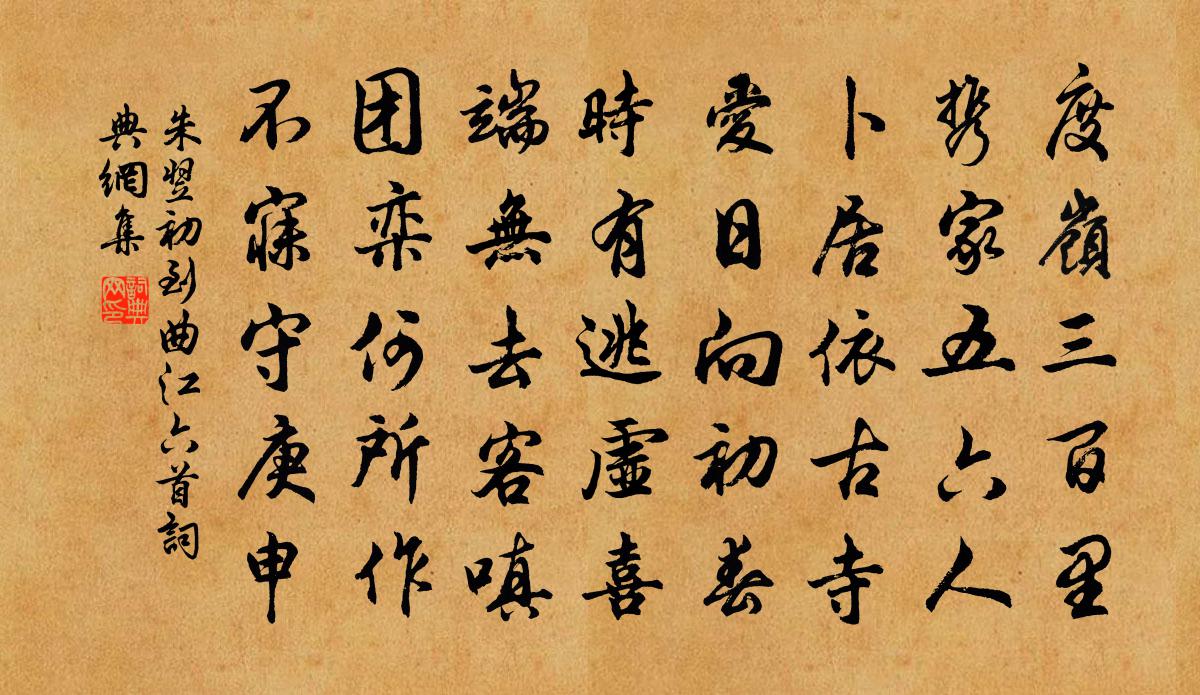 度嶺三百里
携家五六人
卜居依古寺
愛日向初春
時有逃虛喜
端無去客嗔
团栾何所作
不寐守庚申
朱翌初到曲江六首詞
典網集
詞典
网印